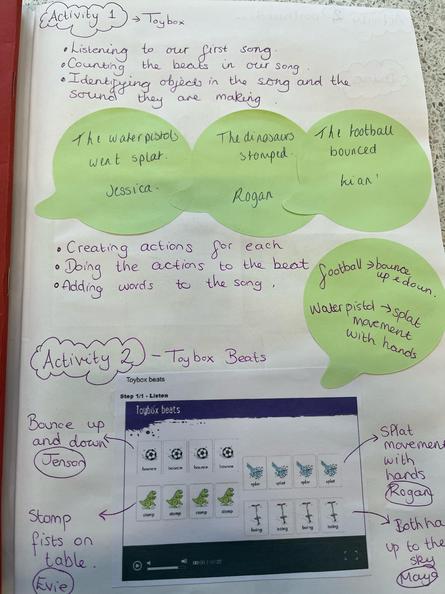 Activity 1 → Toybox
• Listening to our first song.
• Counting the beats in our song.
• Identifying objects in the song and the
sound they are making.
The waterpistols
went splat.
Jessica.
The dinosaurs
stomped.
Rogan
The football
bounced
Kian
• Creating actions for each
• Doing the actions to the beat
• Adding words to the song.
football → bounce
up & down.
Waterpistol → splat
movement
with hands
Activity 2 - Toybox Beats
Toybox beats
Step 1/1 - Listen
Toybox beats
bounce bounce bounce bounce
splat splat splat splat
stomp stomp stomp stomp
boing boing boing boing
Bounce up
and down
Jenson
Stomp
fists on
table.
Evie
Splat
movement
with
hands
Rogan
Both ha
up to the
sky
Maya